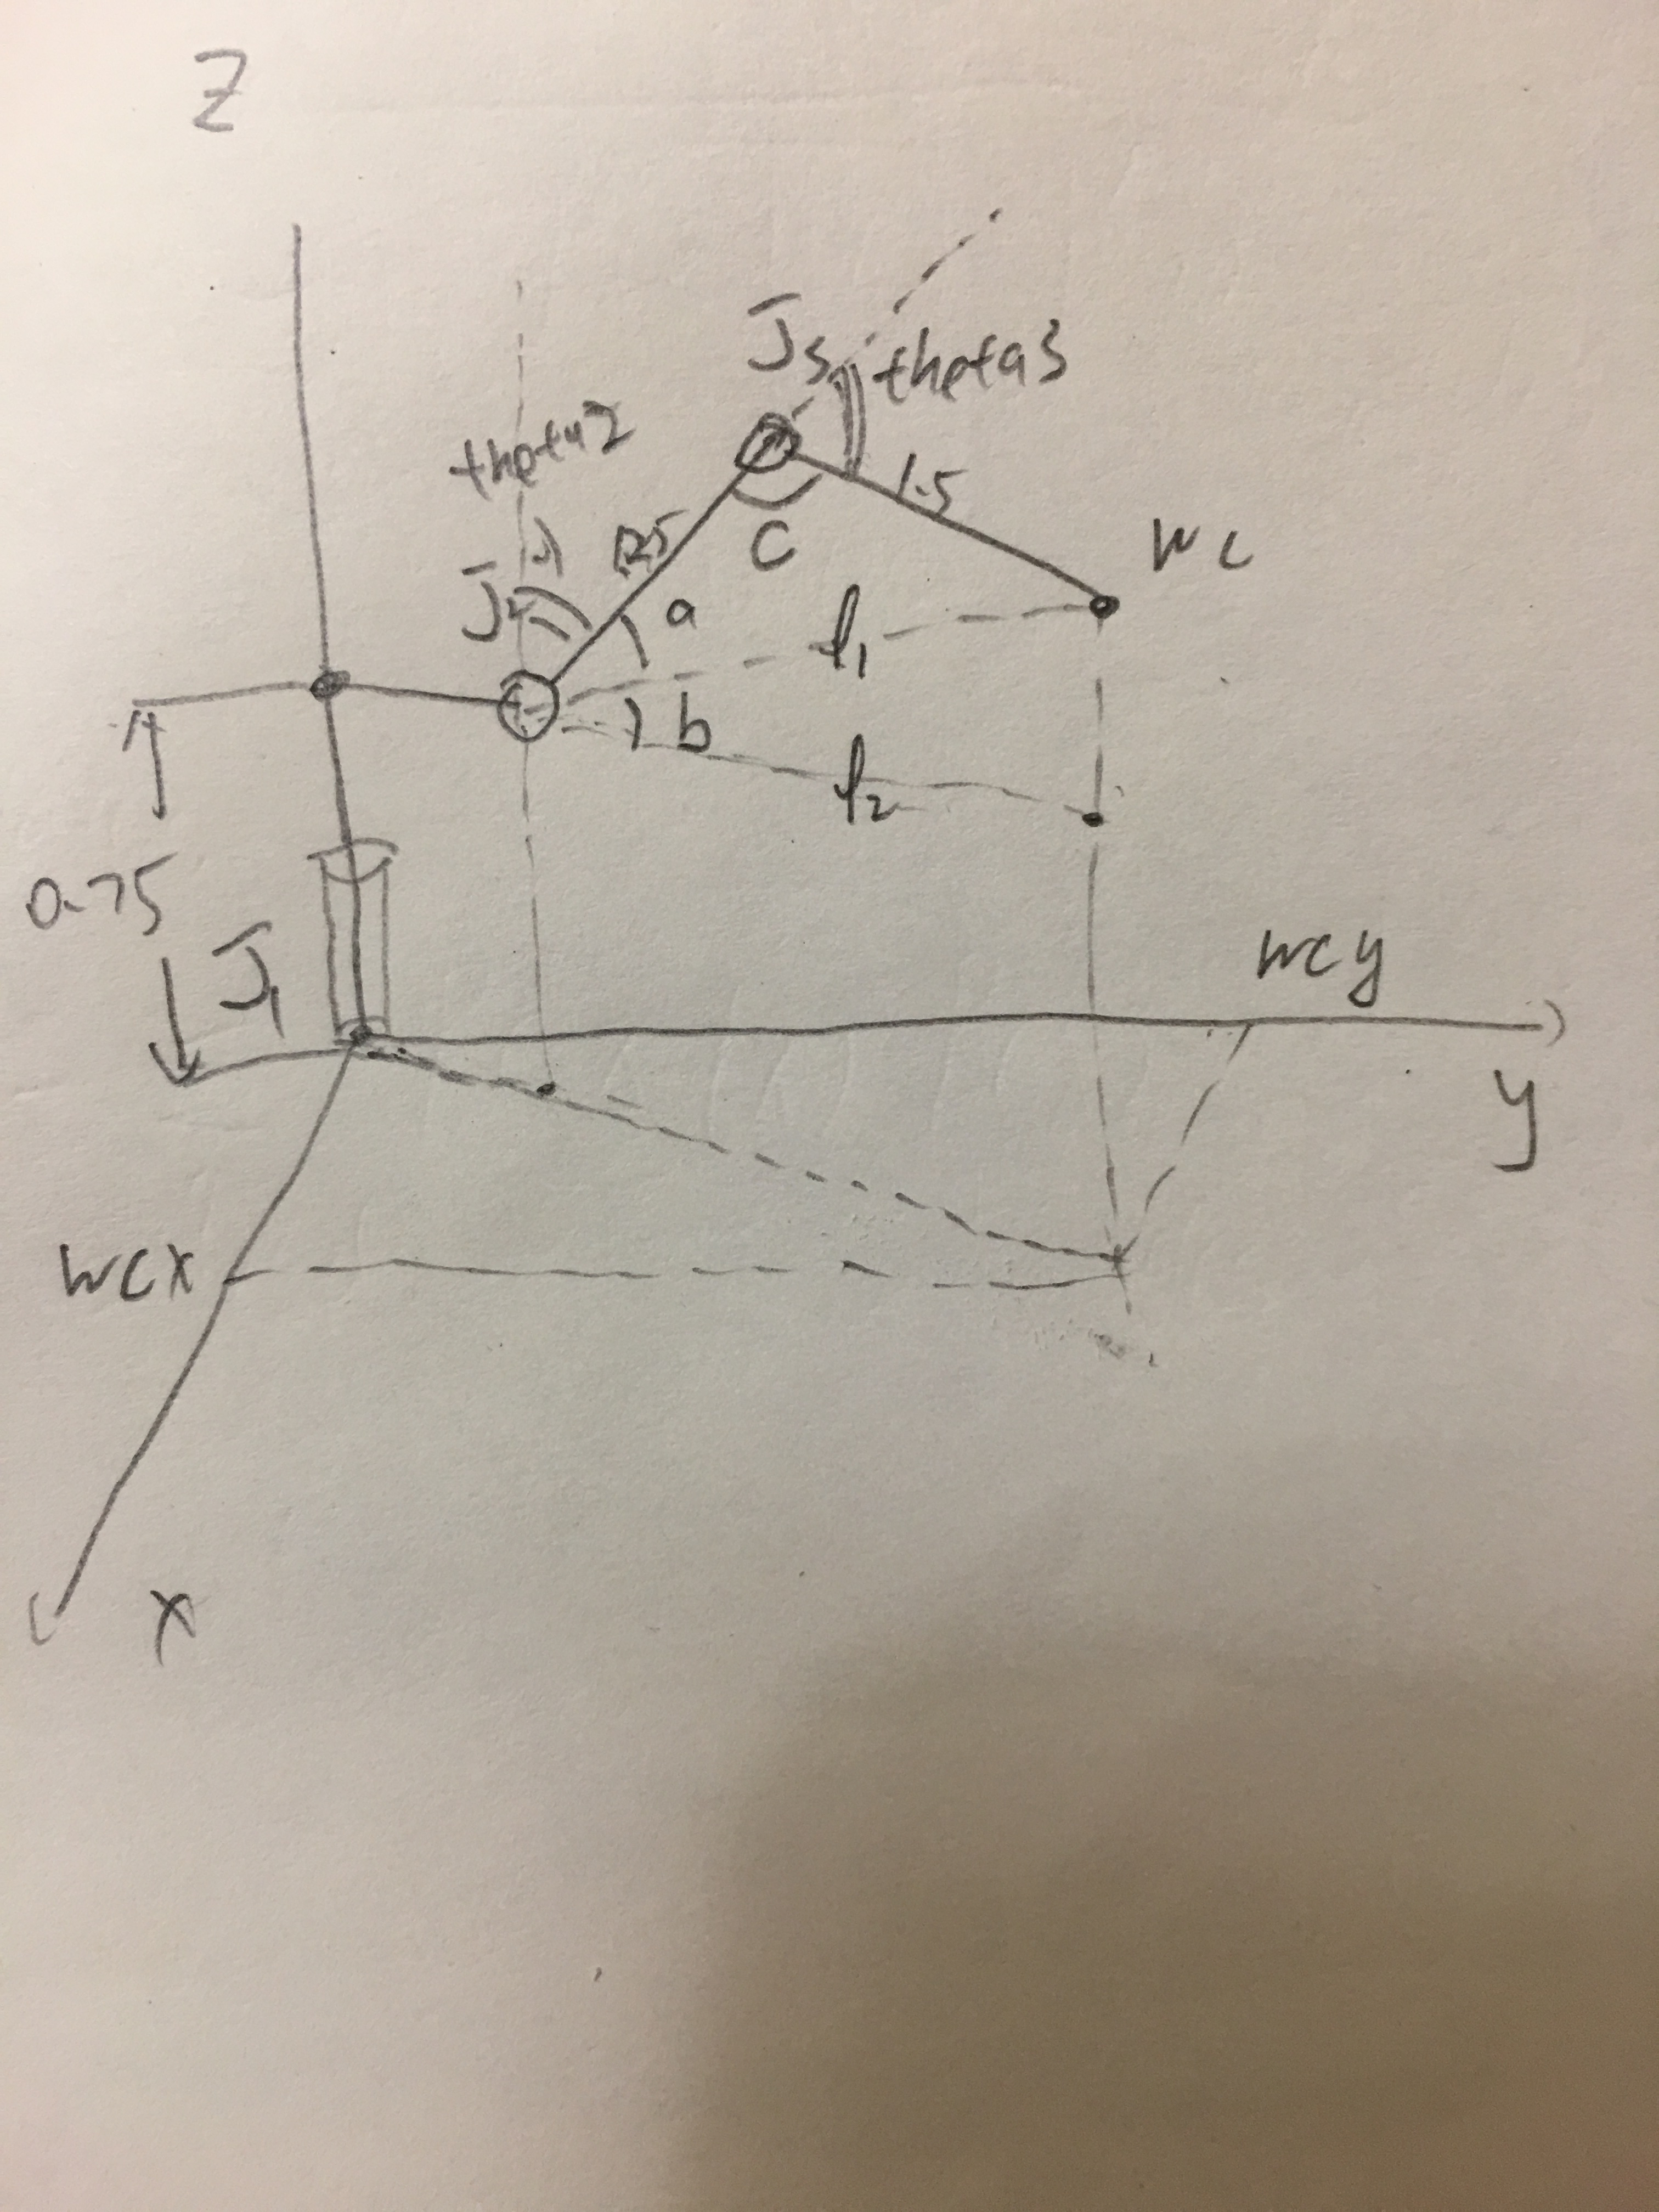 Z
J3
theta3
theta2
1.5
J2
c
wc
a
l1
b
l2
0.75
J1
wcy
y
wcx
x